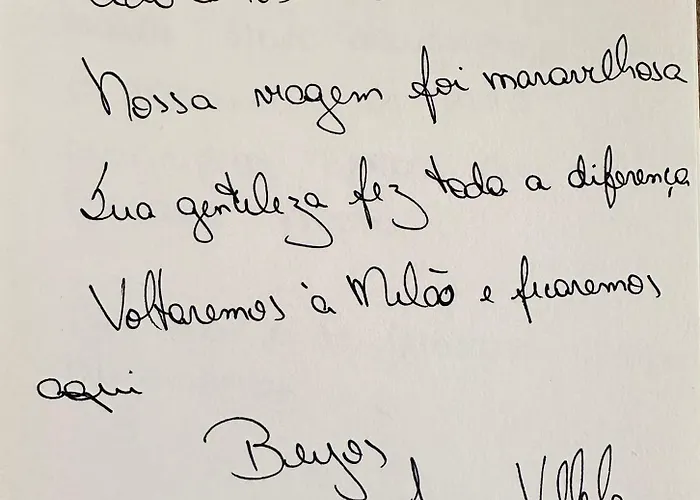 Nossa viagem foi maravilhosa
Sua gentileza fez toda a diferença
Voltaremos à Milão e ficaremos
aqui
Beijos